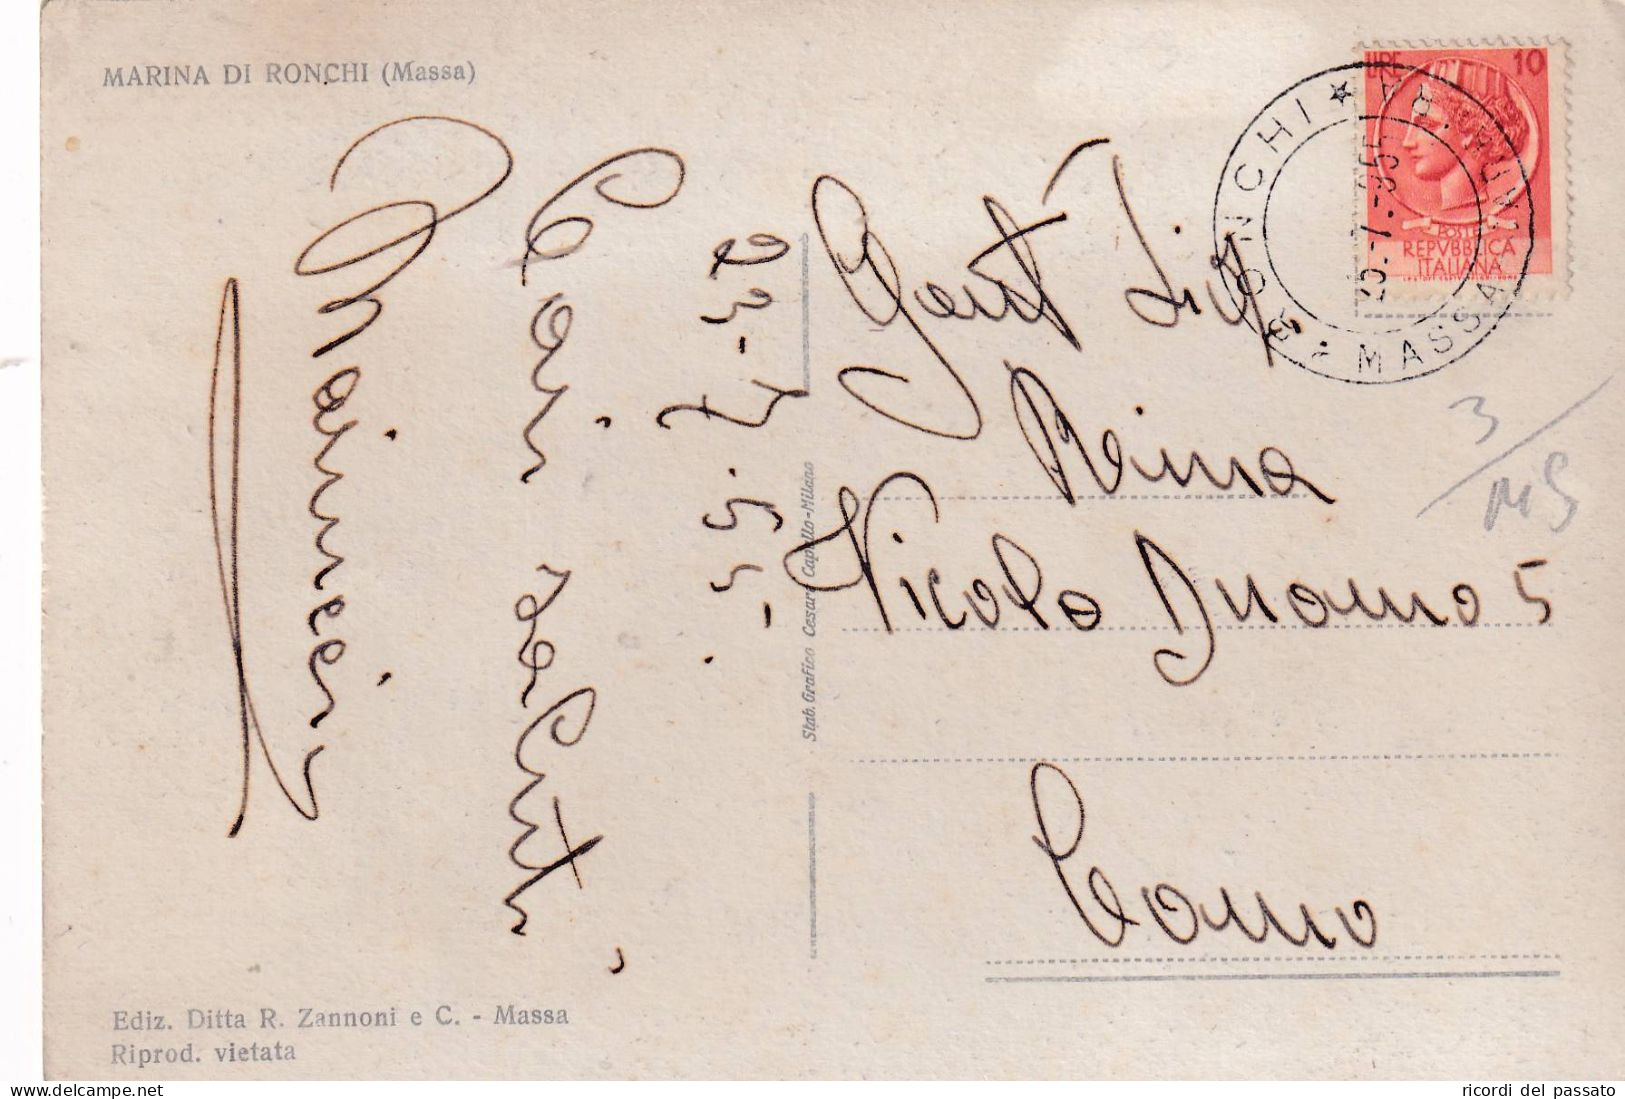 MARINA DI RONCHI (Massa)
23-7-55.
Cari saluti,
Ediz. Ditta R. Zannoni e C. - Massa
Riprod. vietata
Stab. Grafico Cesare Capello-Milano
LIRE 10
POSTE
REPVBBLICA
ITALIANA
RONCHI
MASSA
25.-7.-955
Gent Sig.
Nicolo Duomo 5
Como
3/
MS
ricordi del passato